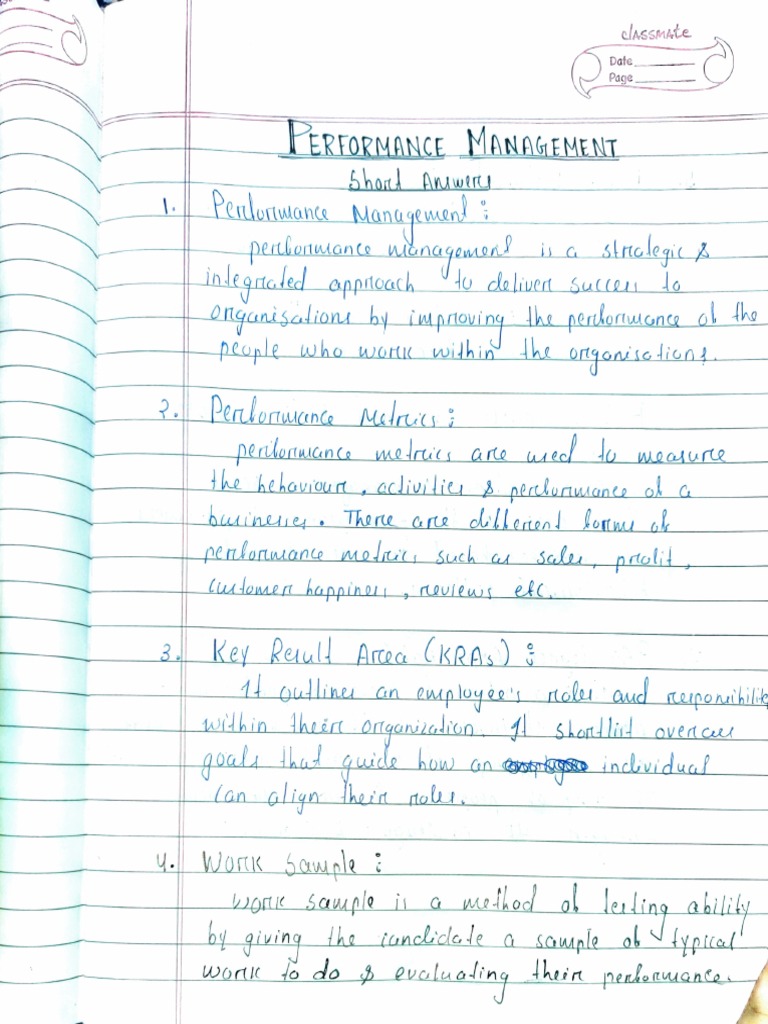 classmate
Date
Page
PERFORMANCE MANAGEMENT
Short Answers
1. Performance Management :
performance management is a strategic &
integrated approach to deliver success to
organisations by improving the performance of the
people who work within the organisations.
2. Performance Metrics :
performance metrics are used to measure
the behaviour, activities & performance of a
businesses. There are different forms of
performance metrics such as sales, profit,
customer happiness, reviews etc.
3. Key Result Area (KRAs) :
It outlines an employee's roles and responsibilit
within their organization. It shortlist
goals that guide how an individual
can align their roles.
4. Work Sample :
Work sample is a method of testing ability
by giving the candidate a sample of typical
work to do & evaluating their performance.